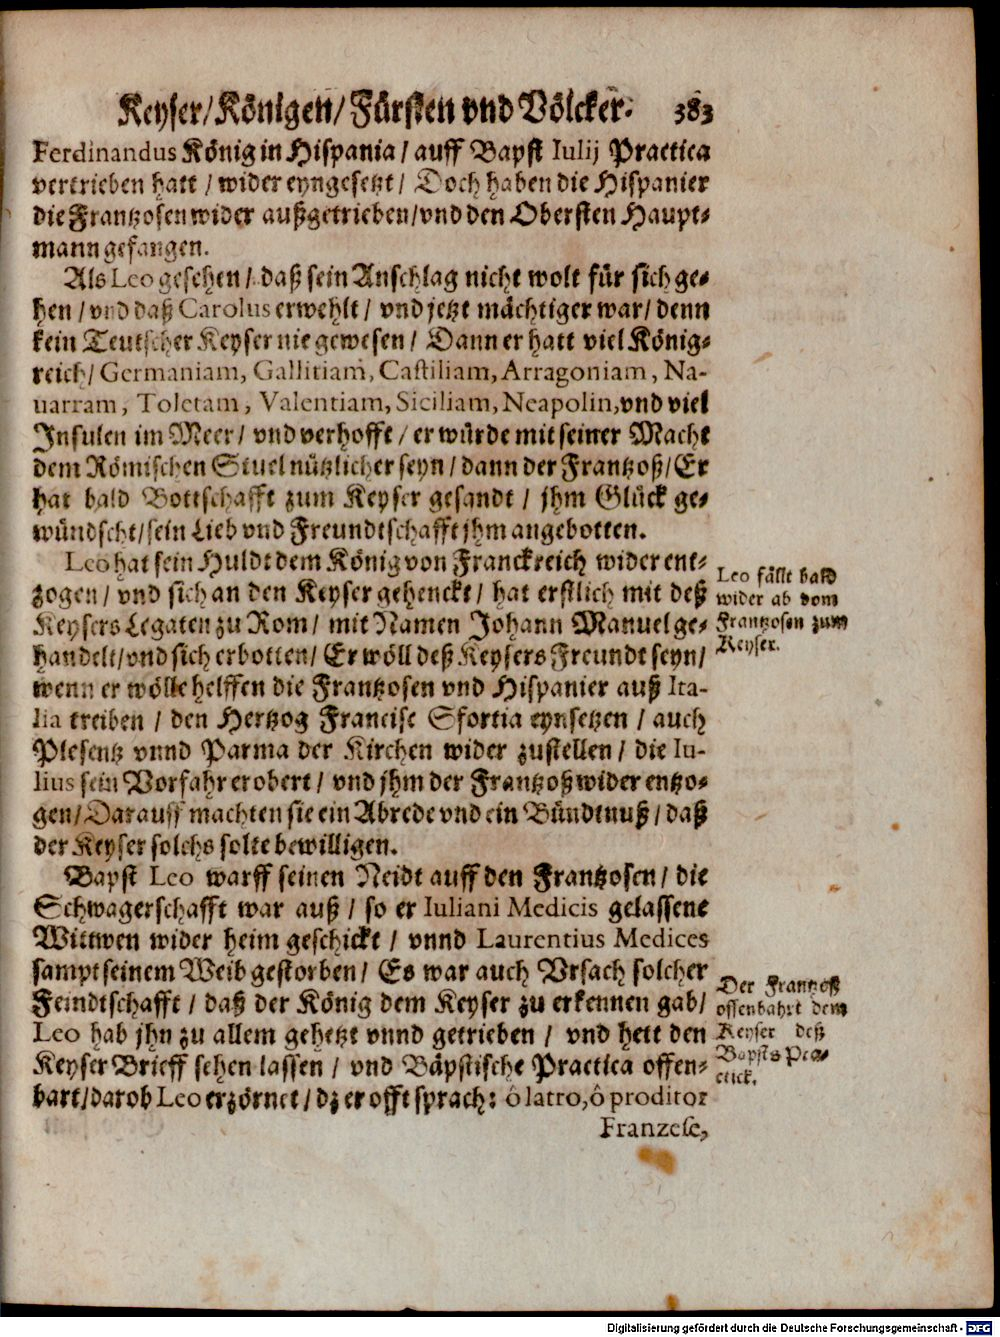 Keyser/Königen/Fürsten vnd Völcker. 383
Ferdinandus König in Hispania / auff Bapst Iulij Practica
vertrieben hatt / wider eyngesetzt / Doch haben die Hispanier
die Frantzosen wider außgetrieben/vnd den Obersten Haupt-
mann gefangen.
Als Leo gesehen / daß sein Anschlag nicht wolt für sich ge-
hen / vnd daß Carolus erwehlt / vnd jetzt mächtiger war/ denn
kein Teutscher Keyser nie gewesen / Dann er hatt viel König-
reich/ Germaniam, Gallitiam, Castiliam, Arragoniam, Na-
uarram, Toletam, Valentiam, Siciliam, Neapolin, vnd viel
Insulen im Meer / vnd verhofft / er würde mit seiner Macht
dem Römischen Stuel nützlicher seyn / dann der Frantzoß/ Er
hat bald Bottschafft zum Keyser gesandt / jhm Glück ge-
wündscht/sein Lieb vnd Freundtschafft jhm angebotten.
Leo hat sein Huldt dem König von Franckreich wider ent-
zogen / vnd sich an den Keyser gehenckt / hat erstlich mit deß
Keysers Legaten zu Rom / mit Namen Johann Manuel ge-
handelt/vnd sich erbotten/ Er wöll deß Keysers Freundt seyn/
wenn er wölle helffen die Frantzosen vnd Hispanier auß Ita-
lia treiben / den Hertzog Francisc Sfortia eynsetzen / auch
Plesentz vnnd Parma der Kirchen wider zustellen / die Iu-
lius sein Vorfahr erobert / vnd jhm der Frantzoß wider entzo-
gen/ Darauff machten sie ein Abrede vnd ein Bündtnuß / daß
der Keyser solchs solte bewilligen.
Leo fällt bald
wider ab vom
Frantzosen zum
Keyser.
Bapst Leo warff seinen Neidt auff den Frantzosen / die
Schwagerschafft war auß / so er Iuliani Medicis gelassene
Wittwen wider heim geschickt / vnnd Laurentius Medices
sampt seinem Weib gestorben / Es war auch Vrsach solcher
Feindtschafft / daß der König dem Keyser zu erkennen gab/
Leo hab jhn zu allem gehetzt vnnd getrieben / vnd hett den
Keyser Brieff sehen lassen / vnd Bäpstische Practica offen-
bart/darob Leo erzörnet / dz er offt sprach: ô latro, ô proditor
Der Frantzoß
offenbahrt dem
Keyser deß
Bapsts Pra-
ctick.
Franzese,
Digitalisierung gefördert durch die Deutsche Forschungsgemeinschaft - DFG